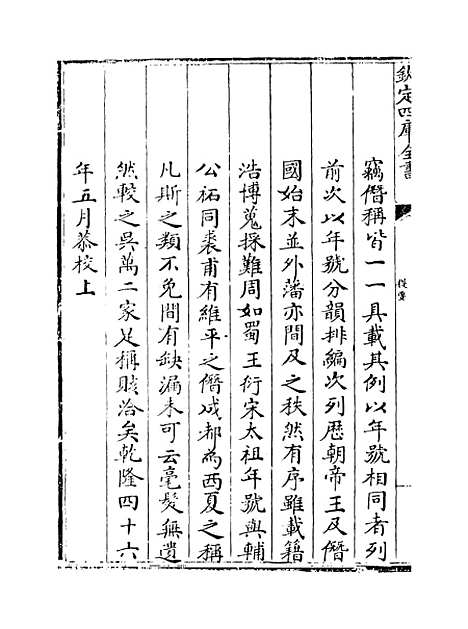 欽定四庫全書
提要
竊僭稱皆一一具載其例以年號相同者列
前次以年號分韻排編次列歴朝帝王及僭
國始末並外藩亦間及之秩然有序雖載籍
浩博蒐採難周如蜀王衍宋太祖年號與輔
公祏同裘甫有維平之僭成都為西夏之稱
凡斯之類不免間有缺漏未可云毫髮無遺
然較之吳萬二家足稱賅洽矣乾隆四十六
年五月恭校上